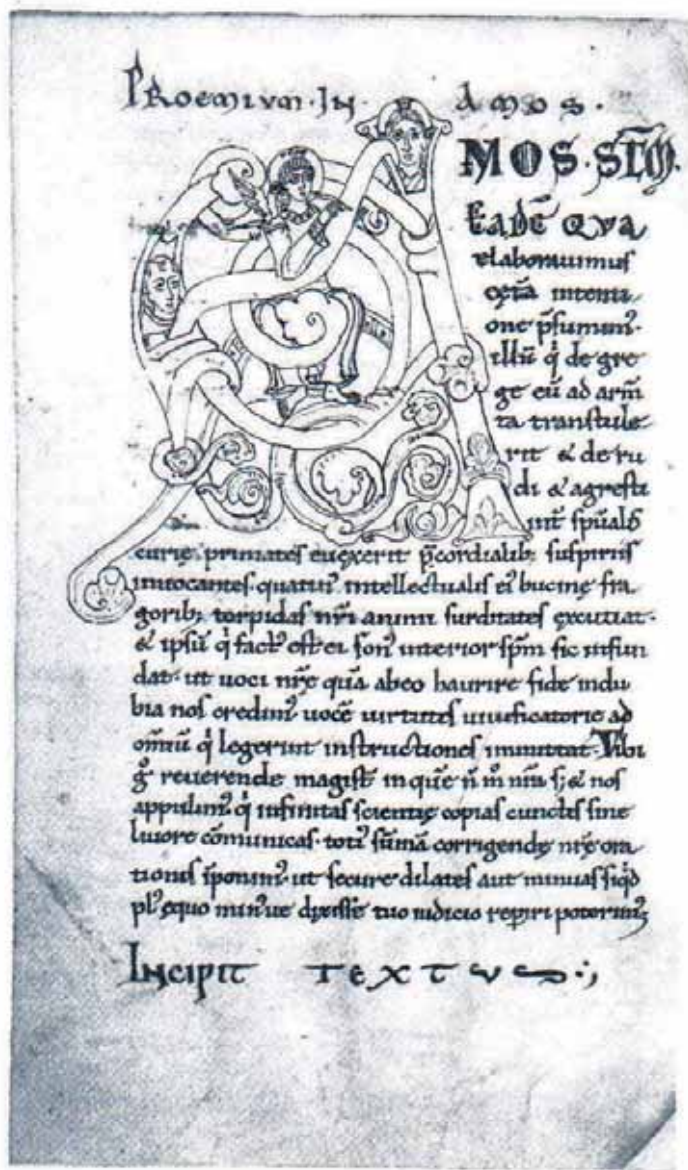 PROEMIVM · IN · AMOS ·
AMOS · SCM ·
EADE QVA
elaborauimus
cęta intenti
one p̄sumimꝰ
illū q̇ de gre
ge eū ad arm̄
ta transtule
rit & de ru
di & agresti
int̄ sp̄ual&
curię primates euexerit p̄cordialibꝫ suspiriis
inuocantes quatinꝰ intellectualis eiꝰ bucine fra
goribꝫ torpidas nr̄i animi surditates excutiat ·
& ipsū q̇ factꝰ est ei sonꝰ interior sp̄m sic infun
dat · ut uoci nrę̄ quā abeo haurire fide indu
bia nos credimꝰ uocē uirtutis uiuificatorię ad
om̄iū q̇ legerint instructiones inmittat · Tibi
gͦ reuerende magist̄ in quē
appulimꝰ q̇ infinitas scientię copias cunctis sine
liuore cōmunicas · totiꝰ sūmā corrigendę nrę̄ ora
tionis īponimꝰ ut secure dilates aut minuas siqͥd
plꝰ ęquo minꝰue dixisse tuo iudicio reperiri poterimꝰ
INCIPIT TEXTVS